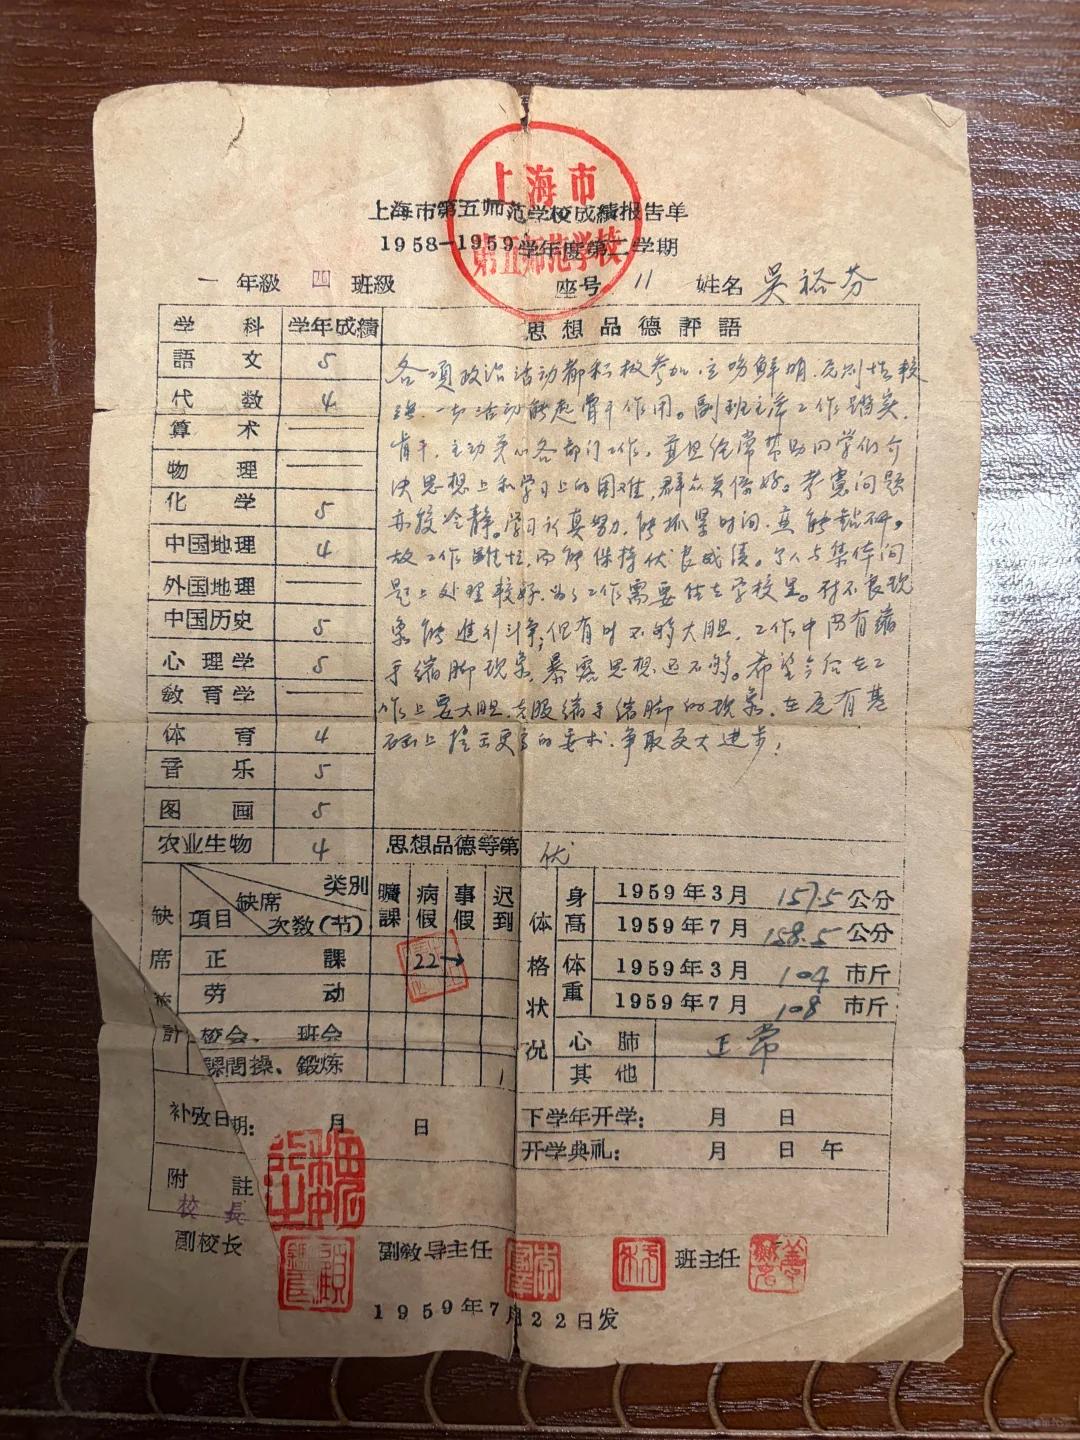 上海市
第五师范学校
上海市第五师范学校成績报告单
1958-1959学年度第二学期
一 年級 四 班級 座号 11 姓名 吴裕芬
学科 学年成績 思想品德評語
語文 5
代数 4
算术
物理
化学 5
中国地理 4
外国地理
中国历史 5
心理学 5
教育学
体育 4
音乐 5
图画 5
农业生物 4
各项政治活动都积极参加,立场鲜明,原则性较
强,一切活动能起骨干作用。副班主席工作踏实,
肯干,主动关心各部门工作,并且经常帮助同学们介
决思想上和学习上的困难,群众关係好。考慮问题
亦较冷静。学习认真努力,能抓紧时间,并能钻研。
故工作雖忙,而能保持优良成绩。个人与集体间
题上处理较好,为了工作需要住在学校里。对不良现
象能进行斗争;但有时不够大胆,工作中尚有缩
手缩脚现象,暴露思想还不够。希望今后在工
作上要大胆,克服缩手缩脚的现象,在原有基
础上提出更高的要求,争取更大进步!
思想品德等第 优
缺席 計
类別 缺席 次数(节) 項目
曠課 病假 事假 迟到
正課 22
劳动
校会、班会
課間操、鍛炼 1
体格状况
身高 1959年3月 157.5 公分
1959年7月 158.5 公分
体重 1959年3月 104 市斤
1959年7月 108 市斤
心肺 正常
其他
补攷日期: 月 日
下学年开学: 月 日
开学典礼: 月 日 午
附註
校長
副校长 副教导主任 班主任
1959年7月22日发